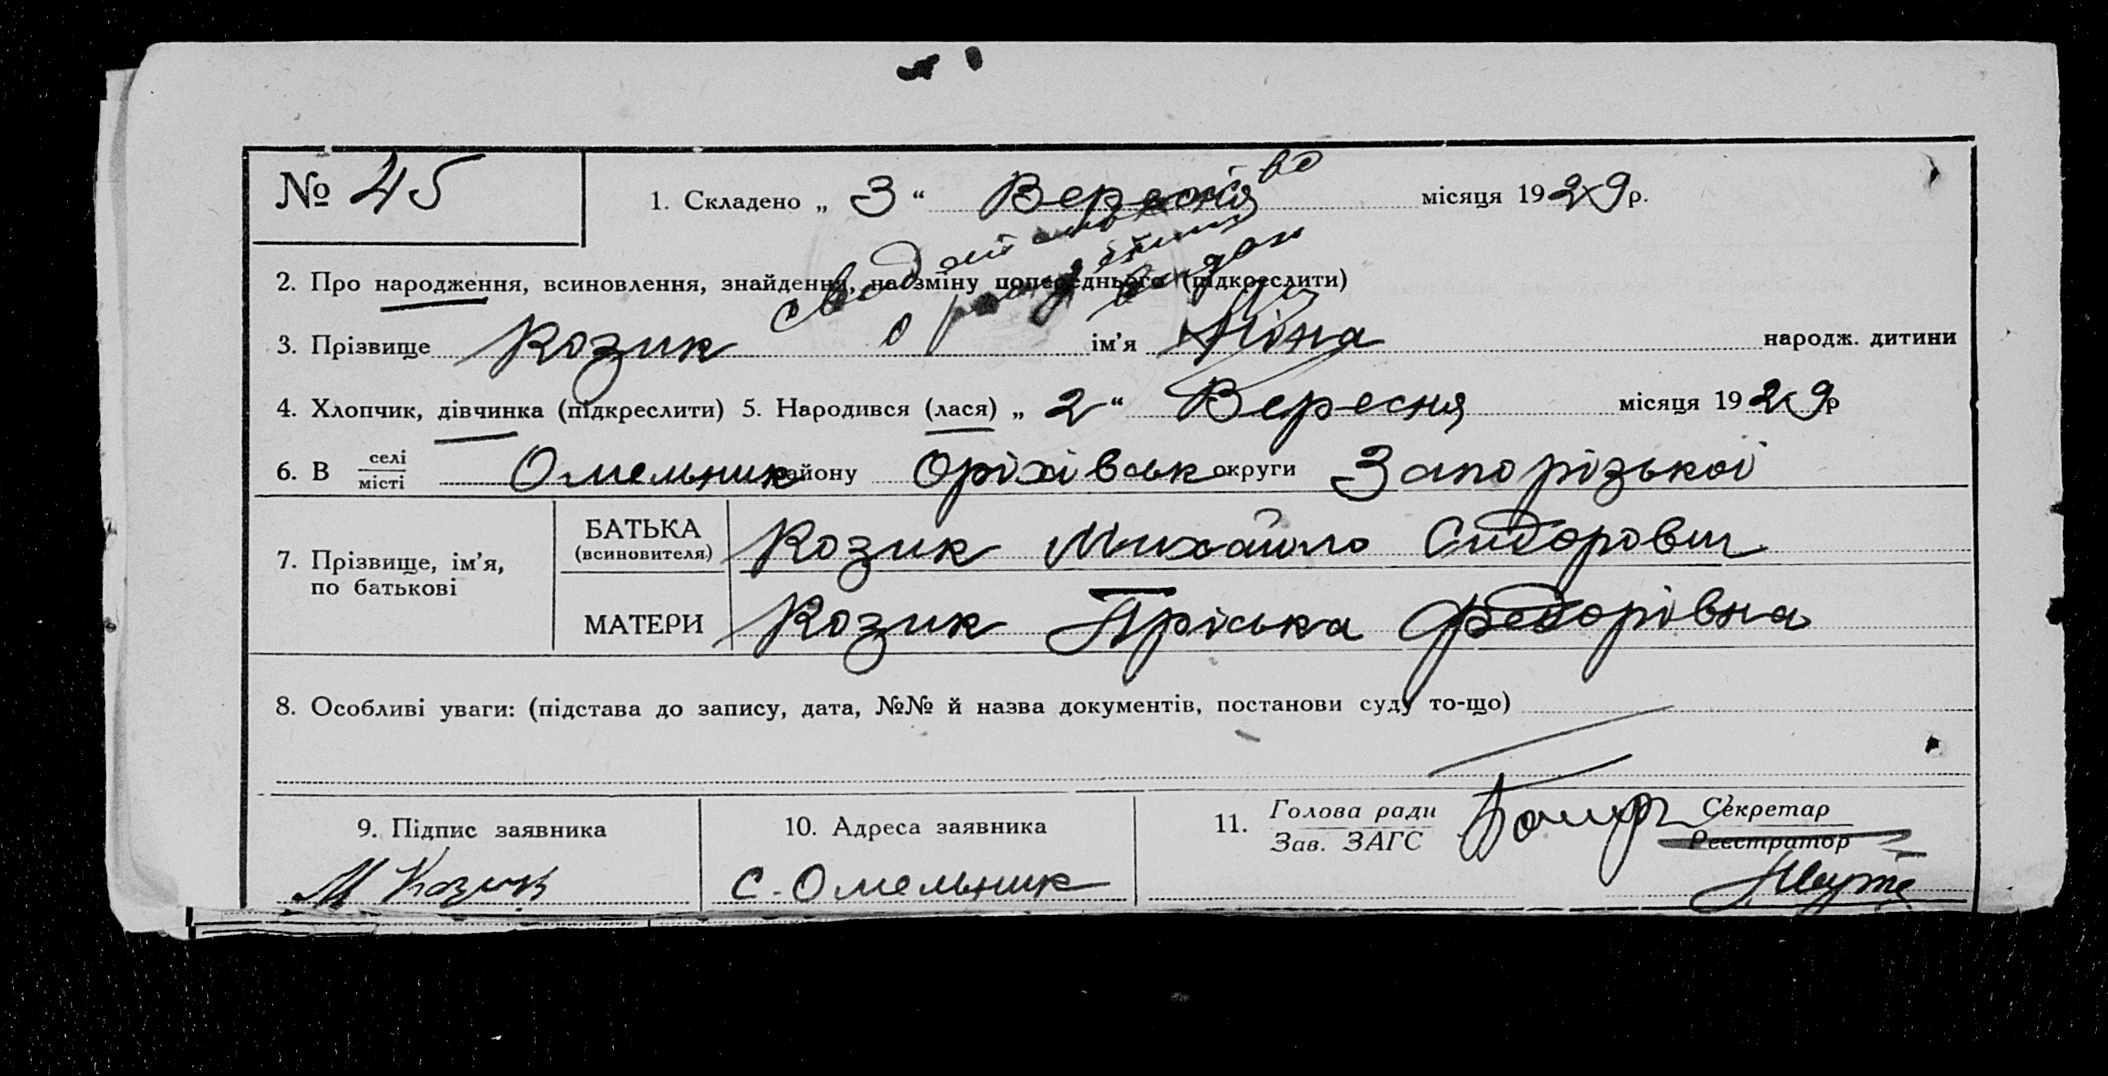 № 45
1. Складено „ 3 “ Вересня місяця 1929 р.
2. Про народження, всиновлення, знайдення, на зміну попереднього (підкреслити)
3. Прізвище Козик ім’я Ніна народж. дитини
4. Хлопчик, дівчинка (підкреслити) 5. Народився (лася) „ 2 “ Вересня місяця 1929 р
6. В селі місті Омельник району Оріхівськ округи Запорізької
7. Прізвище, ім’я, по батькові
БАТЬКА (всиновителя) Козик Михайло Сидорович
МАТЕРИ Козик Пріська Федорівна
8. Особливі уваги: (підстава до запису, дата, №№ й назва документів, постанови суду то-що)
9. Підпис заявника
М Козик
10. Адреса заявника
с. Омельник
11. Голова ради
Зав. ЗАГС
Секретар
Реєстратор